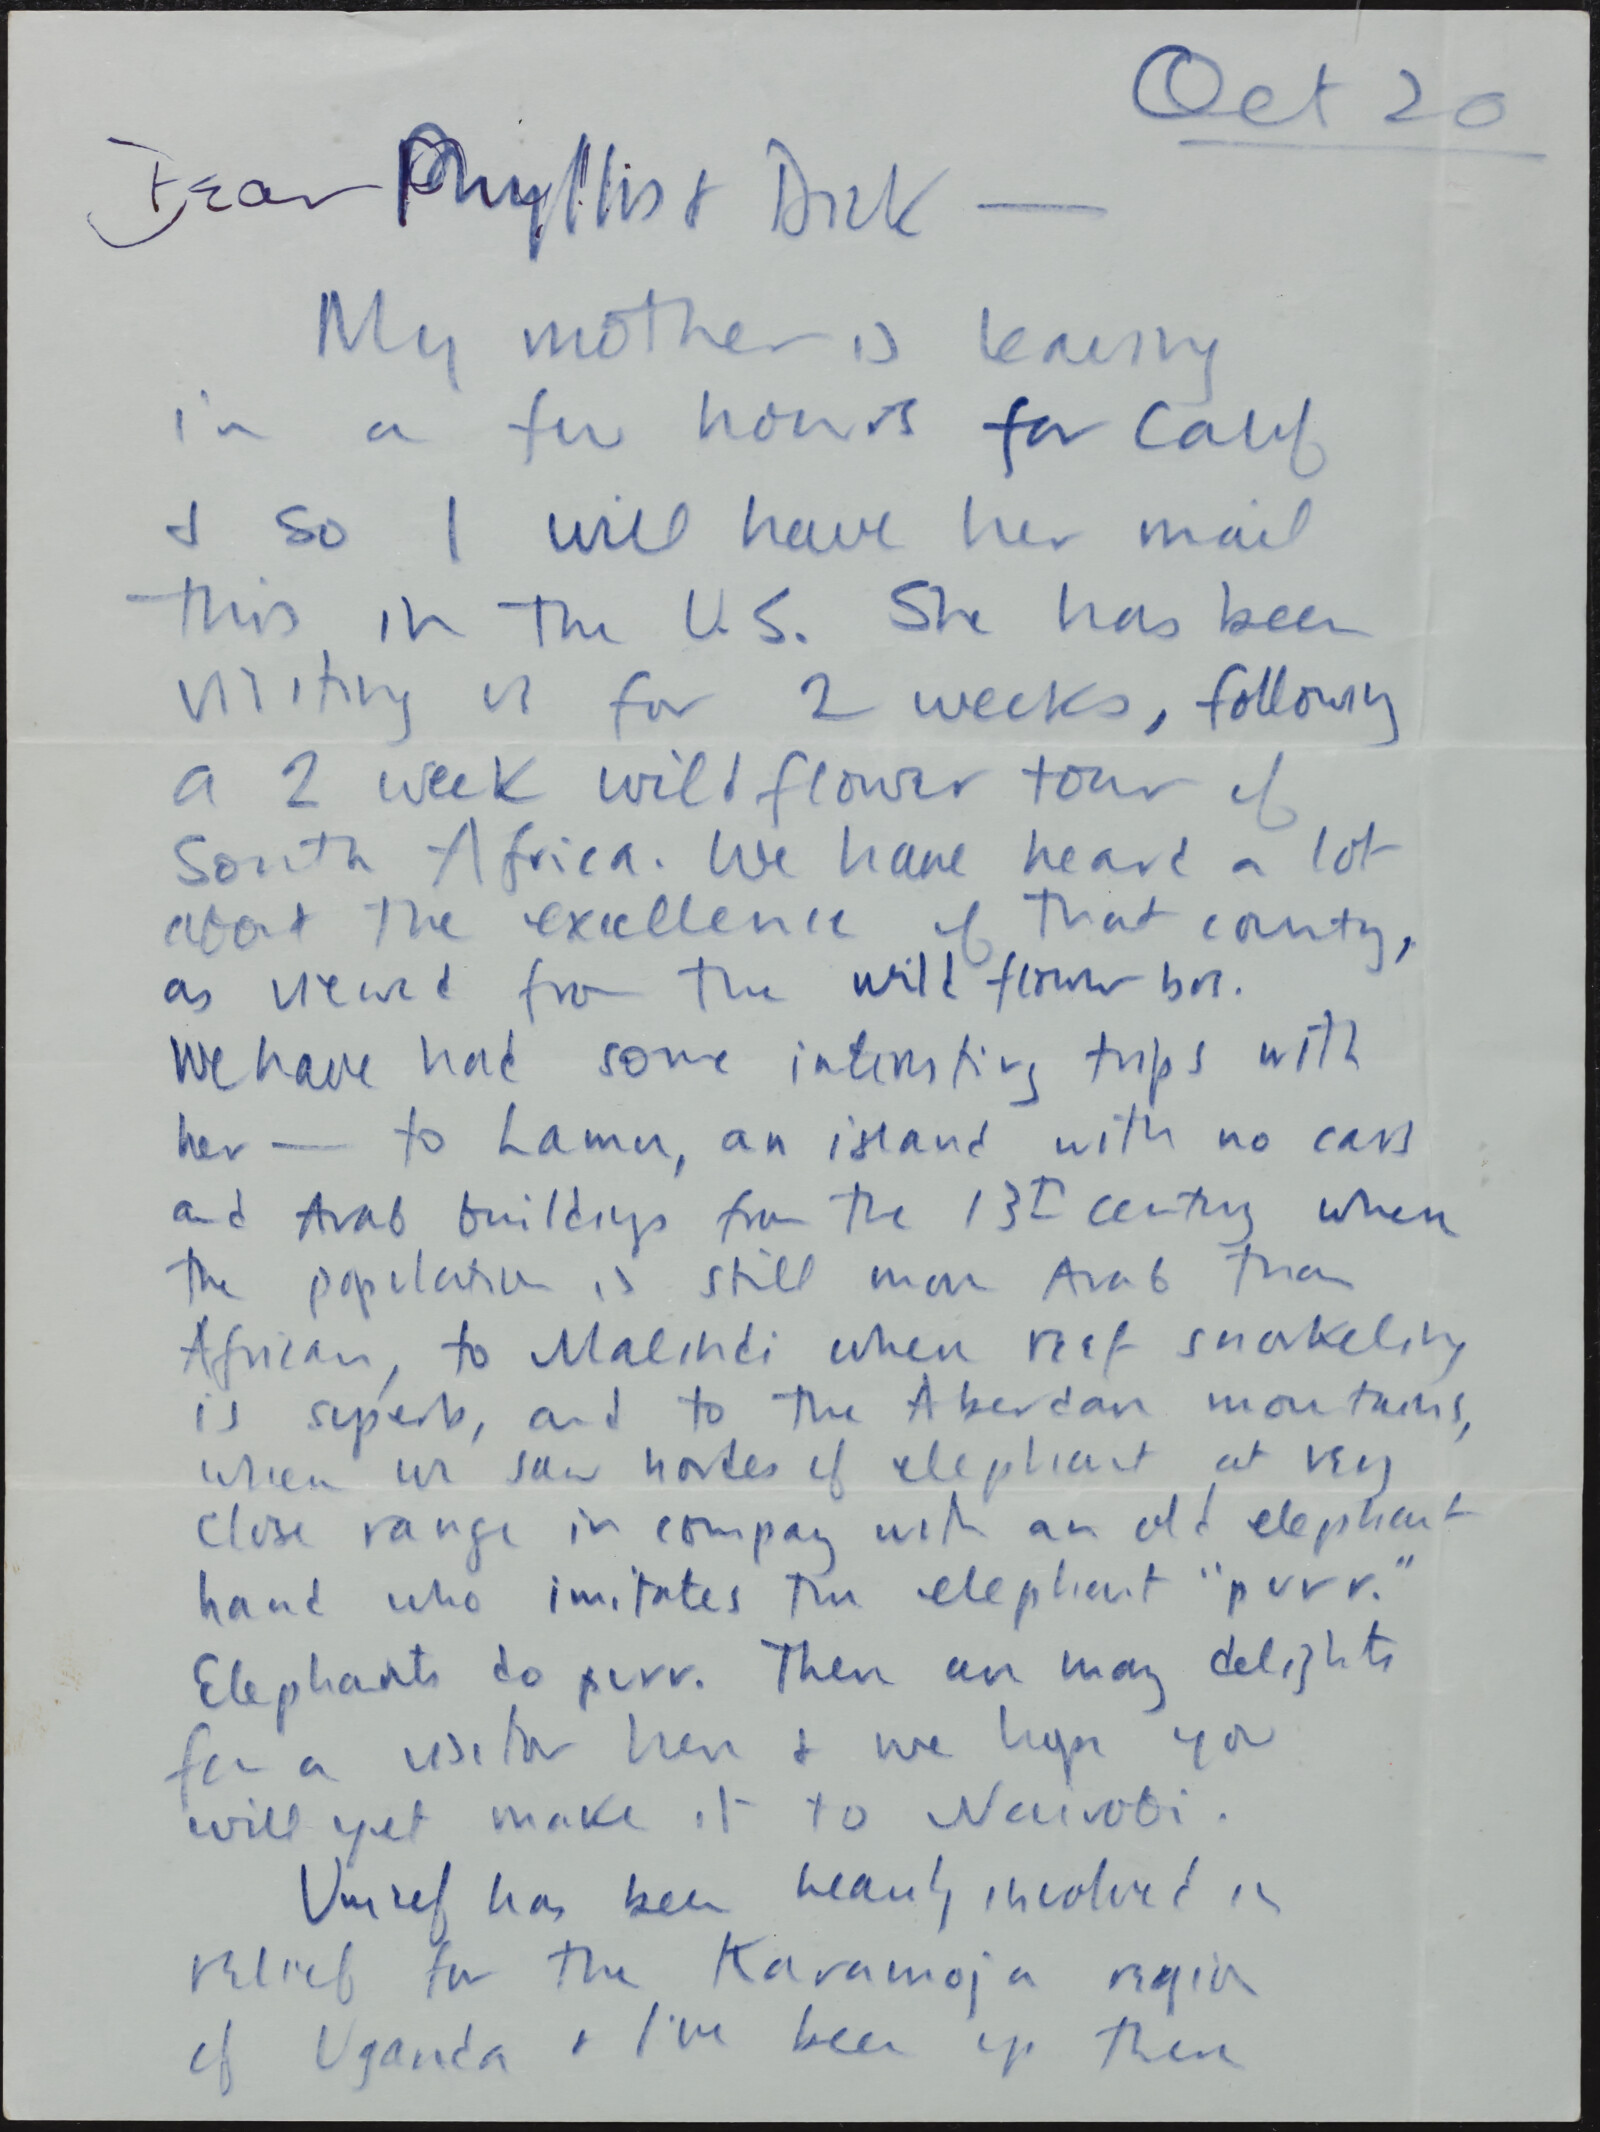 Oct 20
Dear Phyllis & Dick —
My mother is leaving
in a few hours for Calif
& so I will have her mail
this in the U.S. She has been
visiting us for 2 weeks, following
a 2 week wildflower tour of
South Africa. We have heard a lot
about the excellence of that country,
as viewed from the wild flower bus.
We have had some interesting trips with
her — to Lamu, an island with no cars
and Arab buildings from the 13th century where
the population is still more Arab than
African, to Malindi where reef snorkeling
is superb, and to the Aberdare mountains,
where we saw hordes of elephant at very
close range in company with an old elephant
hand who imitates the elephant "purr."
Elephants do purr. There are many delights
for a visitor here & we hope you
will yet make it to Nairobi.
Unicef has been heavily involved in
relief for the Karamoja region
of Uganda & I've been up there